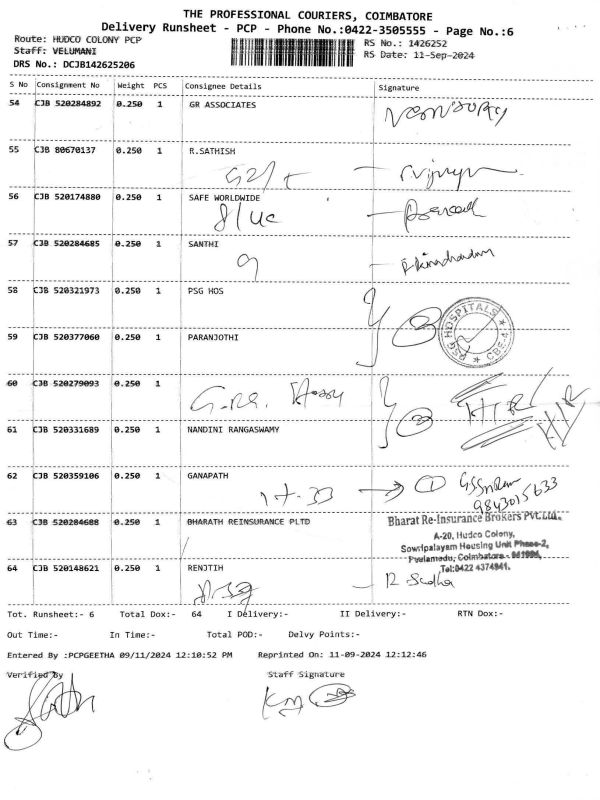 THE PROFESSIONAL COURIERS, COIMBATORE
Delivery Runsheet - PCP - Phone No.:0422-3505555 - Page No.:6
Route: HUDCO COLONY PCP
Staff: VELUMANI
DRS No.: DCJB142625206
RS No.: 1426252
RS Date: 11-Sep-2024
S No Consignment No Weight PCS Consignee Details Signature
54 CJB 520284892 0.250 1 GR ASSOCIATES
55 CJB 80670137 0.250 1 R.SATHISH
56 CJB 520174880 0.250 1 SAFE WORLDWIDE
57 CJB 520284685 0.250 1 SANTHI
9
58 CJB 520321973 0.250 1 PSG HOS
PSG HOSPITALS CBE-4
59 CJB 520377060 0.250 1 PARANJOTHI
60 CJB 520279093 0.250 1
61 CJB 520331689 0.250 1 NANDINI RANGASWAMY
62 CJB 520359106 0.250 1 GANAPATH
17-33 1
9843015633
63 CJB 520284688 0.250 1 BHARATH REINSURANCE PLTD
Bharat Re-Insurance Brokers Pvt.Ltd.
A-20, Hudco Colony,
Sowripalayam Housing Unit Phase-2,
Peelamedu, Coimbatore - 641004,
Tel:0422 4374941.
64 CJB 520148621 0.250 1 RENJTIH
R Sudha
Tot. Runsheet:- 6 Total Dox:- 64 I Delivery:- II Delivery:- RTN Dox:-
Out Time:- In Time:- Total POD:- Delvy Points:-
Entered By :PCPGEETHA 09/11/2024 12:10:52 PM Reprinted On: 11-09-2024 12:12:46
Verified By Staff Signature